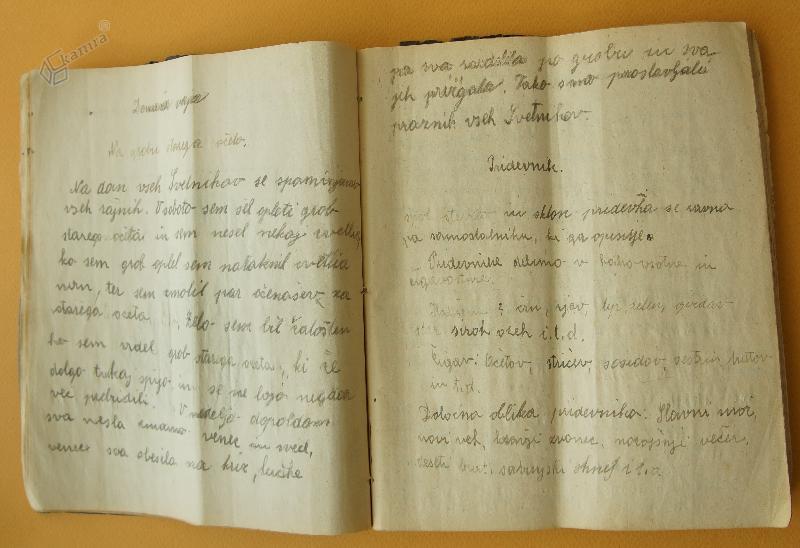 kamra
Domača vaja
Na grobu starega očeta.
Na dan vseh Svetnikov se spominjamo
vseh rajnih. V soboto sem šel opleti grob
starega očeta in sem nesel nekaj cvetlic,
ko sem grob oplel sem nataknil cvetlice
nanj, ter sem zmolil par očenašev za
starega očeta. Zelo sem bil žalosten
ko sem videl grob starega očeta, ki že
dolgo tukaj spijo in se ne bojo nikdar
več prebudili. V nedeljo dopoldan
sva nesla z mamo venec in sveče,
venec sva obesila na križ, lučke
pa sva sadila po grobu in sva
jih prižgala. Tako smo proslavljali
praznik vseh Svetnikov.
Pridevnik.
Spol število in sklon pridevnika se ravna
po samostalniku, ki ga opisuje.
Pridevnike delimo v kakovostne in
črn, rjav, lep, zelen,
siroh i.t.d.
Čigav: Očetov, stričev, sosedov, sestrin, bratov
in t.d.
Določna oblika pridevnika: Slavni mož,
novi vek, zvonec, večer,
deseti brat, savinjski i.t.d.